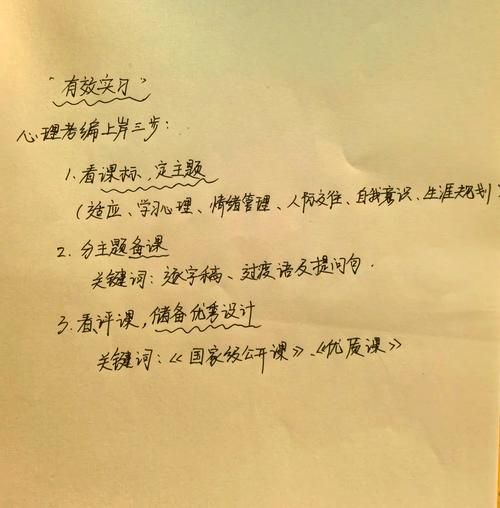 “有效实习”
心理考编上岸三步:
1. 看课标、定主题
(适应、学习心理、情绪管理、人际交往、自我意识、生涯规划)
2. 分主题备课
关键词: 逐字稿、过度语及提问句.
3. 看评课,储备优秀设计
关键词:《国家级公开课》、《优质课》